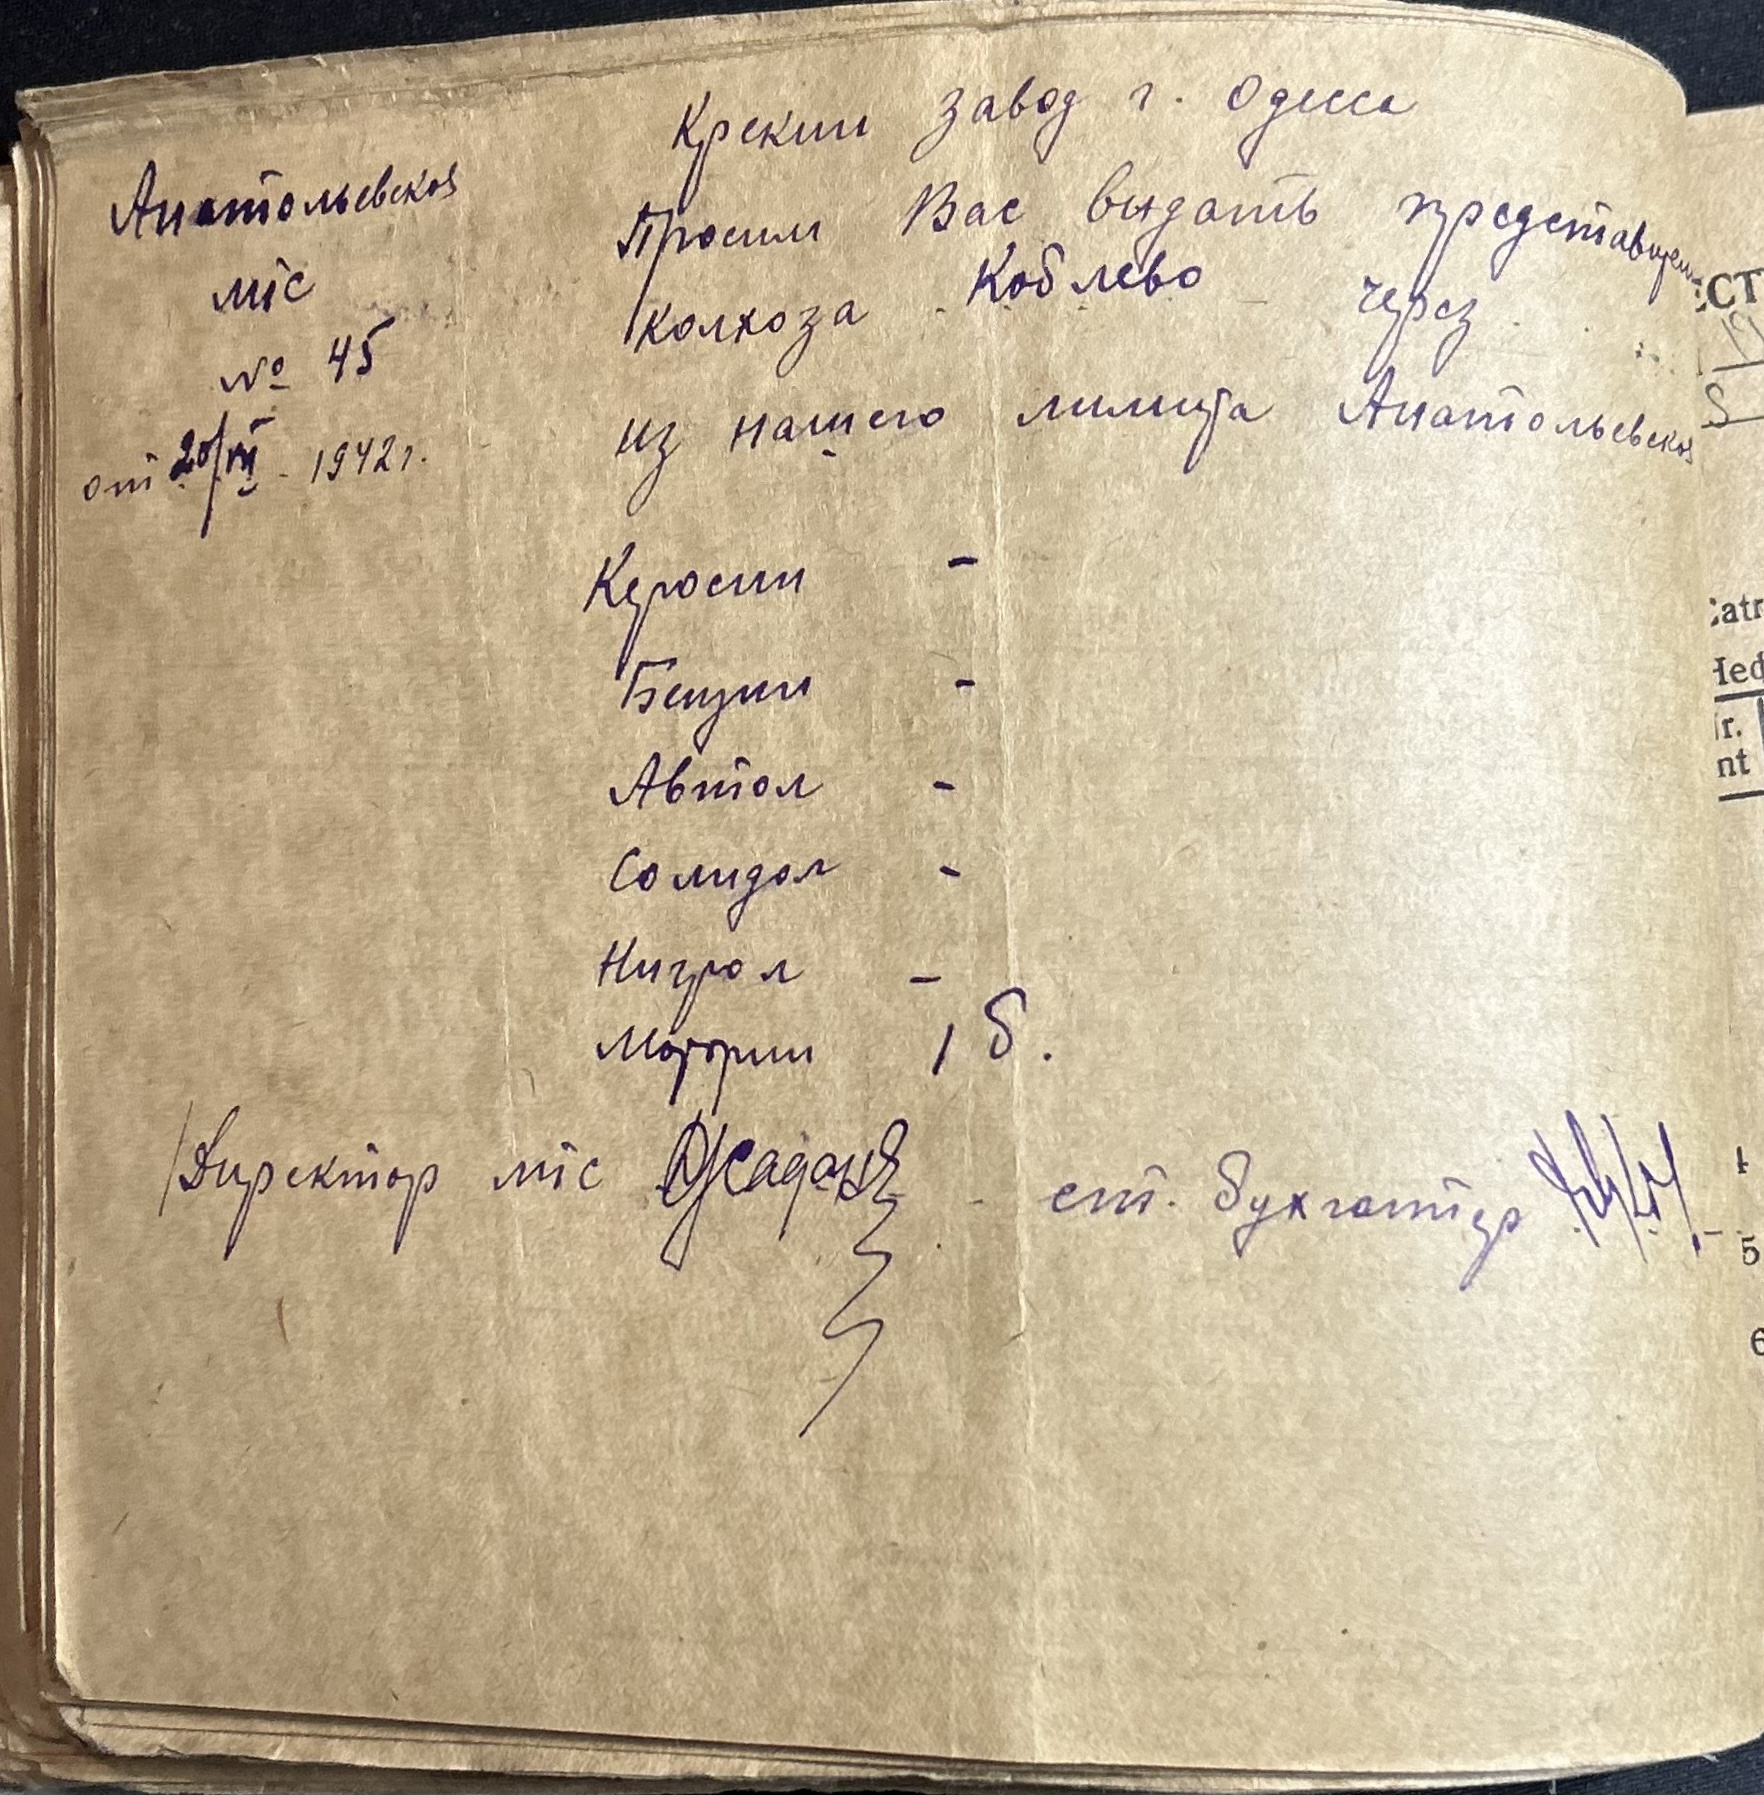 Анатольевской
мтс
№ 45
от 20/VII - 1942 г.
Крекин завод г. Одесса
Просим Вас выдать представителю
колхоза Коблево через
из нашего лимита Анатольевской
Керосин -
Бензин -
Автол -
Солидол -
Нигрол -
Моторин 1 б.
Директор мтс ст. бухгалтер
СТ
Catr
Нед
r.
nt
5
6